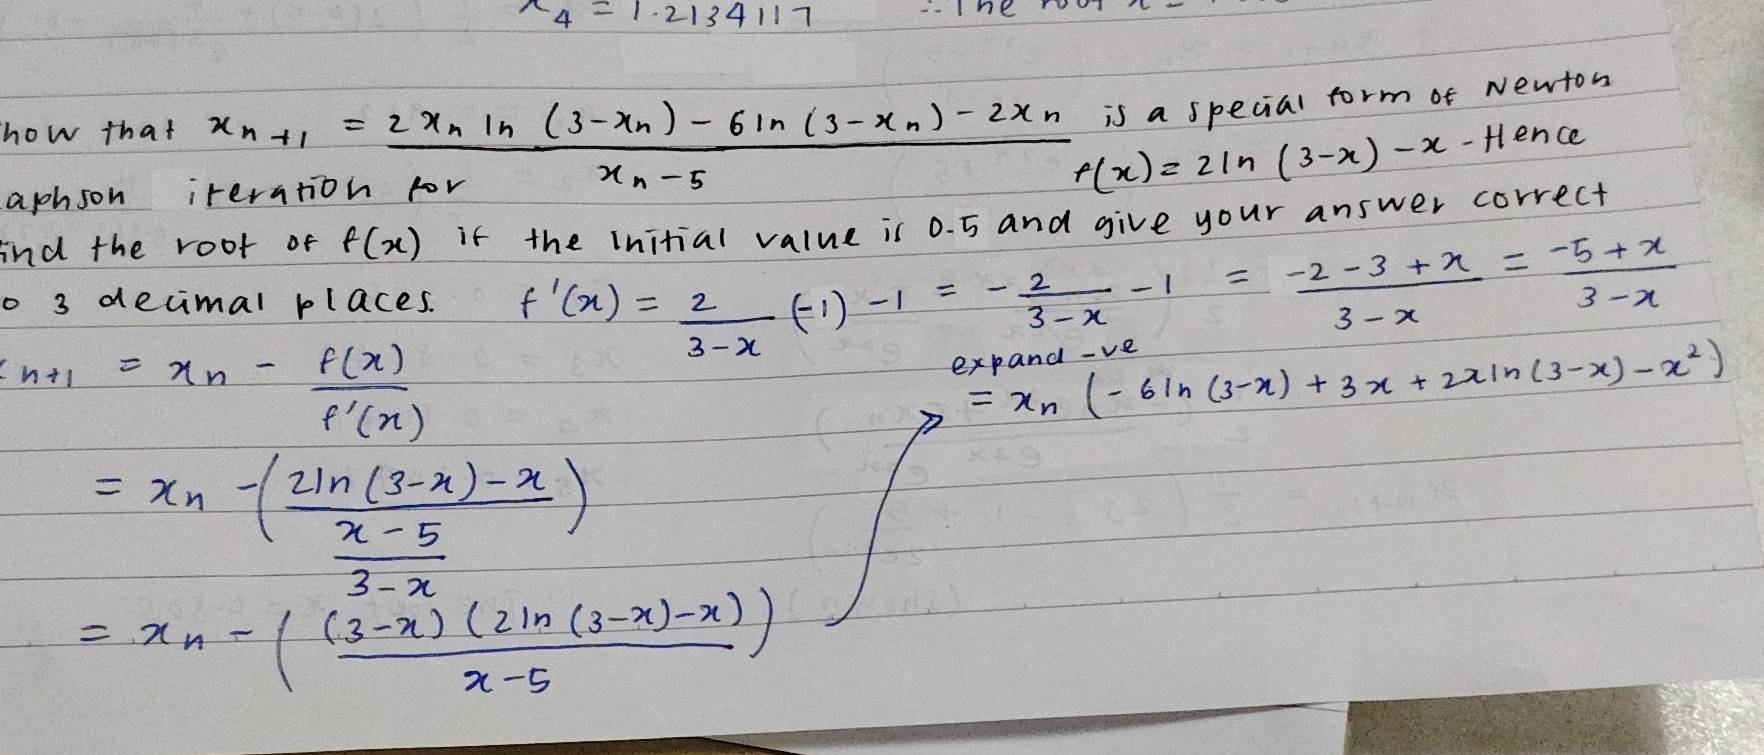 x₄ = 1.2134117 ∴ The root x =
how that xₙ₊₁ = (2xₙ ln (3-xₙ) - 6 ln (3-xₙ) - 2xₙ) / (xₙ - 5) is a special form of Newton
aphson iteration for f(x) = 2 ln (3-x) - x . Hence
ind the root of f(x) if the initial value is 0.5 and give your answer correct
o 3 decimal places. f'(x) = 2/(3-x) (-1) - 1 = - 2/(3-x) - 1 = (-2-3+x)/(3-x) = (-5+x)/(3-x)
n+1 = xₙ - f(x)/f'(x)
= xₙ - ((2 ln (3-x) - x) / ((x-5)/(3-x)))
= xₙ - ((3-x) (2 ln (3-x) - x) / (x-5))
expand -ve
= xₙ (- 6 ln (3-x) + 3x + 2x ln (3-x) - x²)